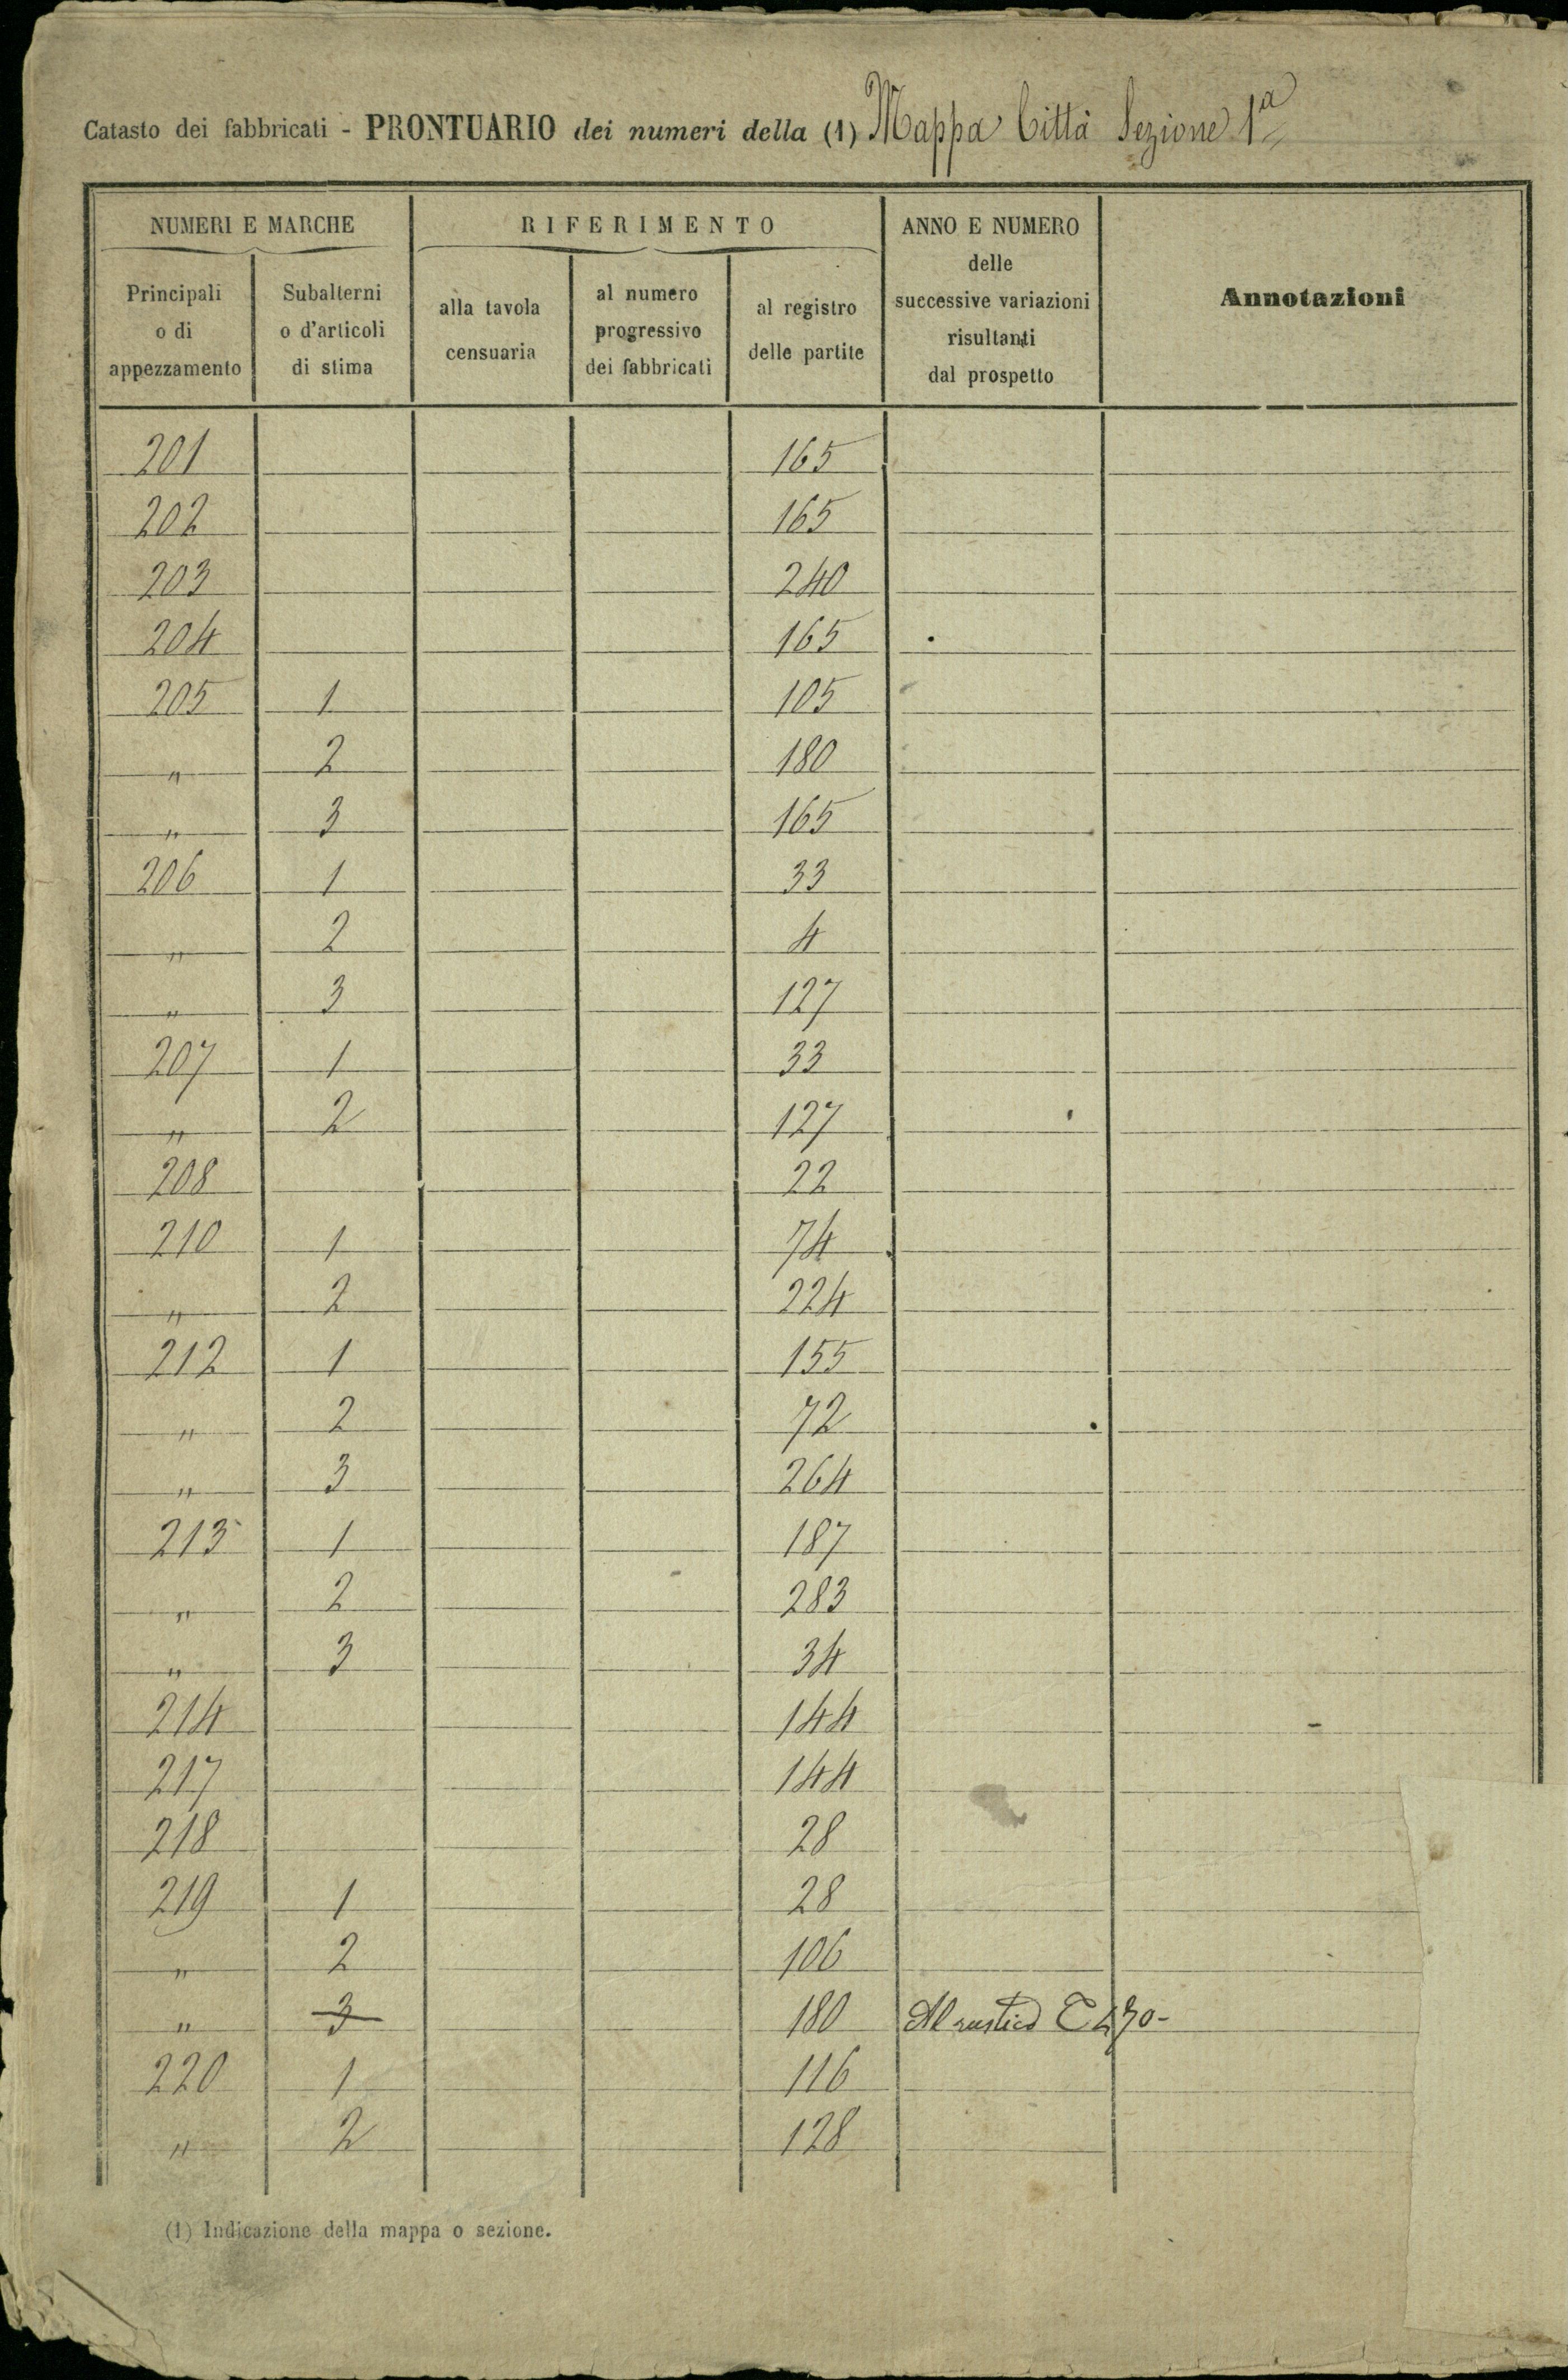 Catasto dei fabbricati - PRONTUARIO dei numeri della (1) Mappa Città Sezione 1ª
NUMERI E MARCHE
RIFERIMENTO
ANNO E NUMERO
delle
successive variazioni
risultanti
dal prospetto
Annotazioni
Principali
o di
appezzamento
Subalterni
o d'articoli
di stima
alla tavola
censuaria
al numero
progressivo
dei fabbricati
al registro
delle partite
201 165
202 165
203 240
204 165
205 1 105
" 2 180
" 3 165
206 1 33
" 2 4
" 3 127
207 1 33
" 2 127
208 22
210 1 74
" 2 224
212 1 155
" 2 72
" 3 264
213 1 187
" 2 283
" 3 34
214 144
217 144
218 28
219 1 28
" 2 106
" 3 180 Al rustico
220 1 116
" 2 128
(1) Indicazione della mappa o sezione.